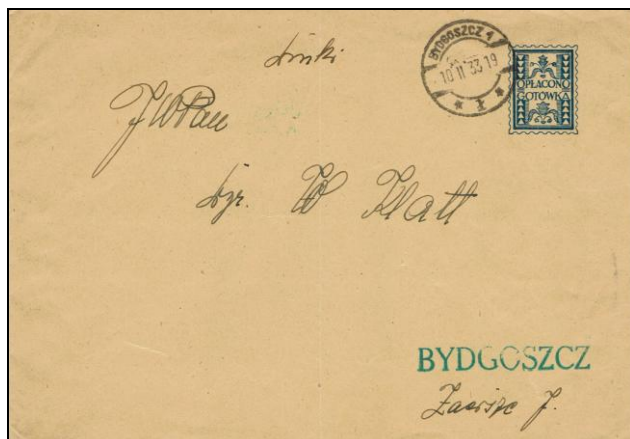 druki
BYDGOSZCZ 1
10 II 33 19
* 1 *
OPŁACONO
GOTÓWKĄ
JWPan
dyr. W Klatt
BYDGOSZCZ